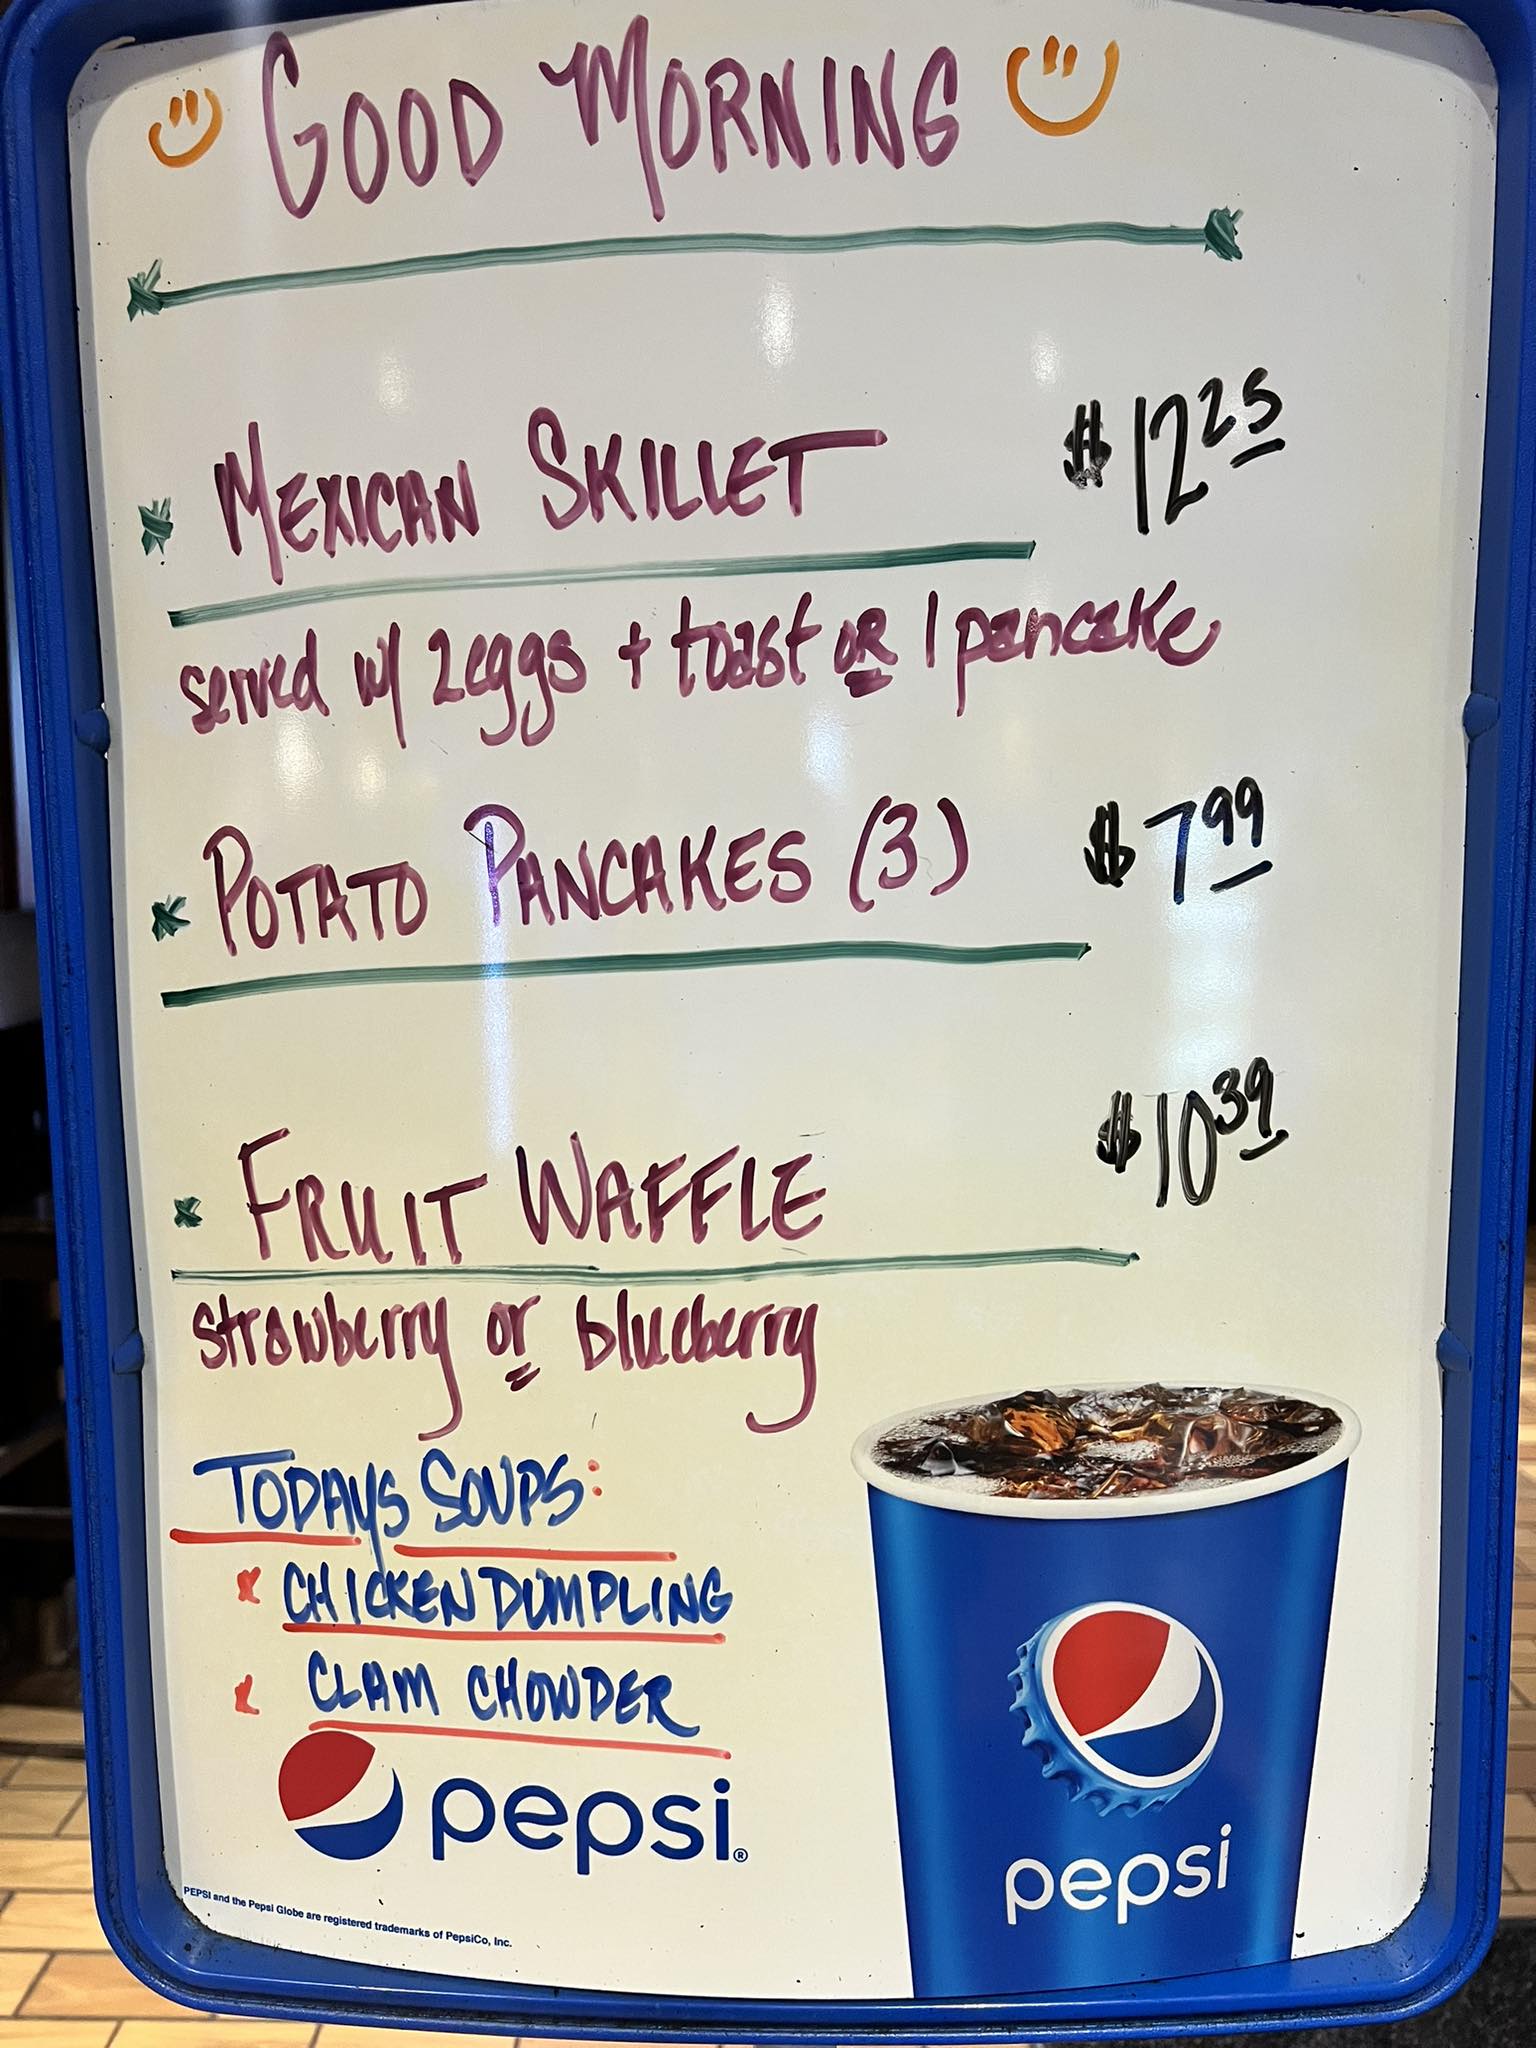 GOOD MORNING
* MEXICAN SKILLET $12 25
served w/ 2 eggs + toast OR 1 pancake
* POTATO PANCAKES (3) $7 99
* FRUIT WAFFLE $10 39
strawberry or blueberry
TODAYS SOUPS:
* CHICKEN DUMPLING
* CLAM CHOWDER
pepsi®
pepsi
PEPSI and the Pepsi Globe are registered trademarks of PepsiCo, Inc.